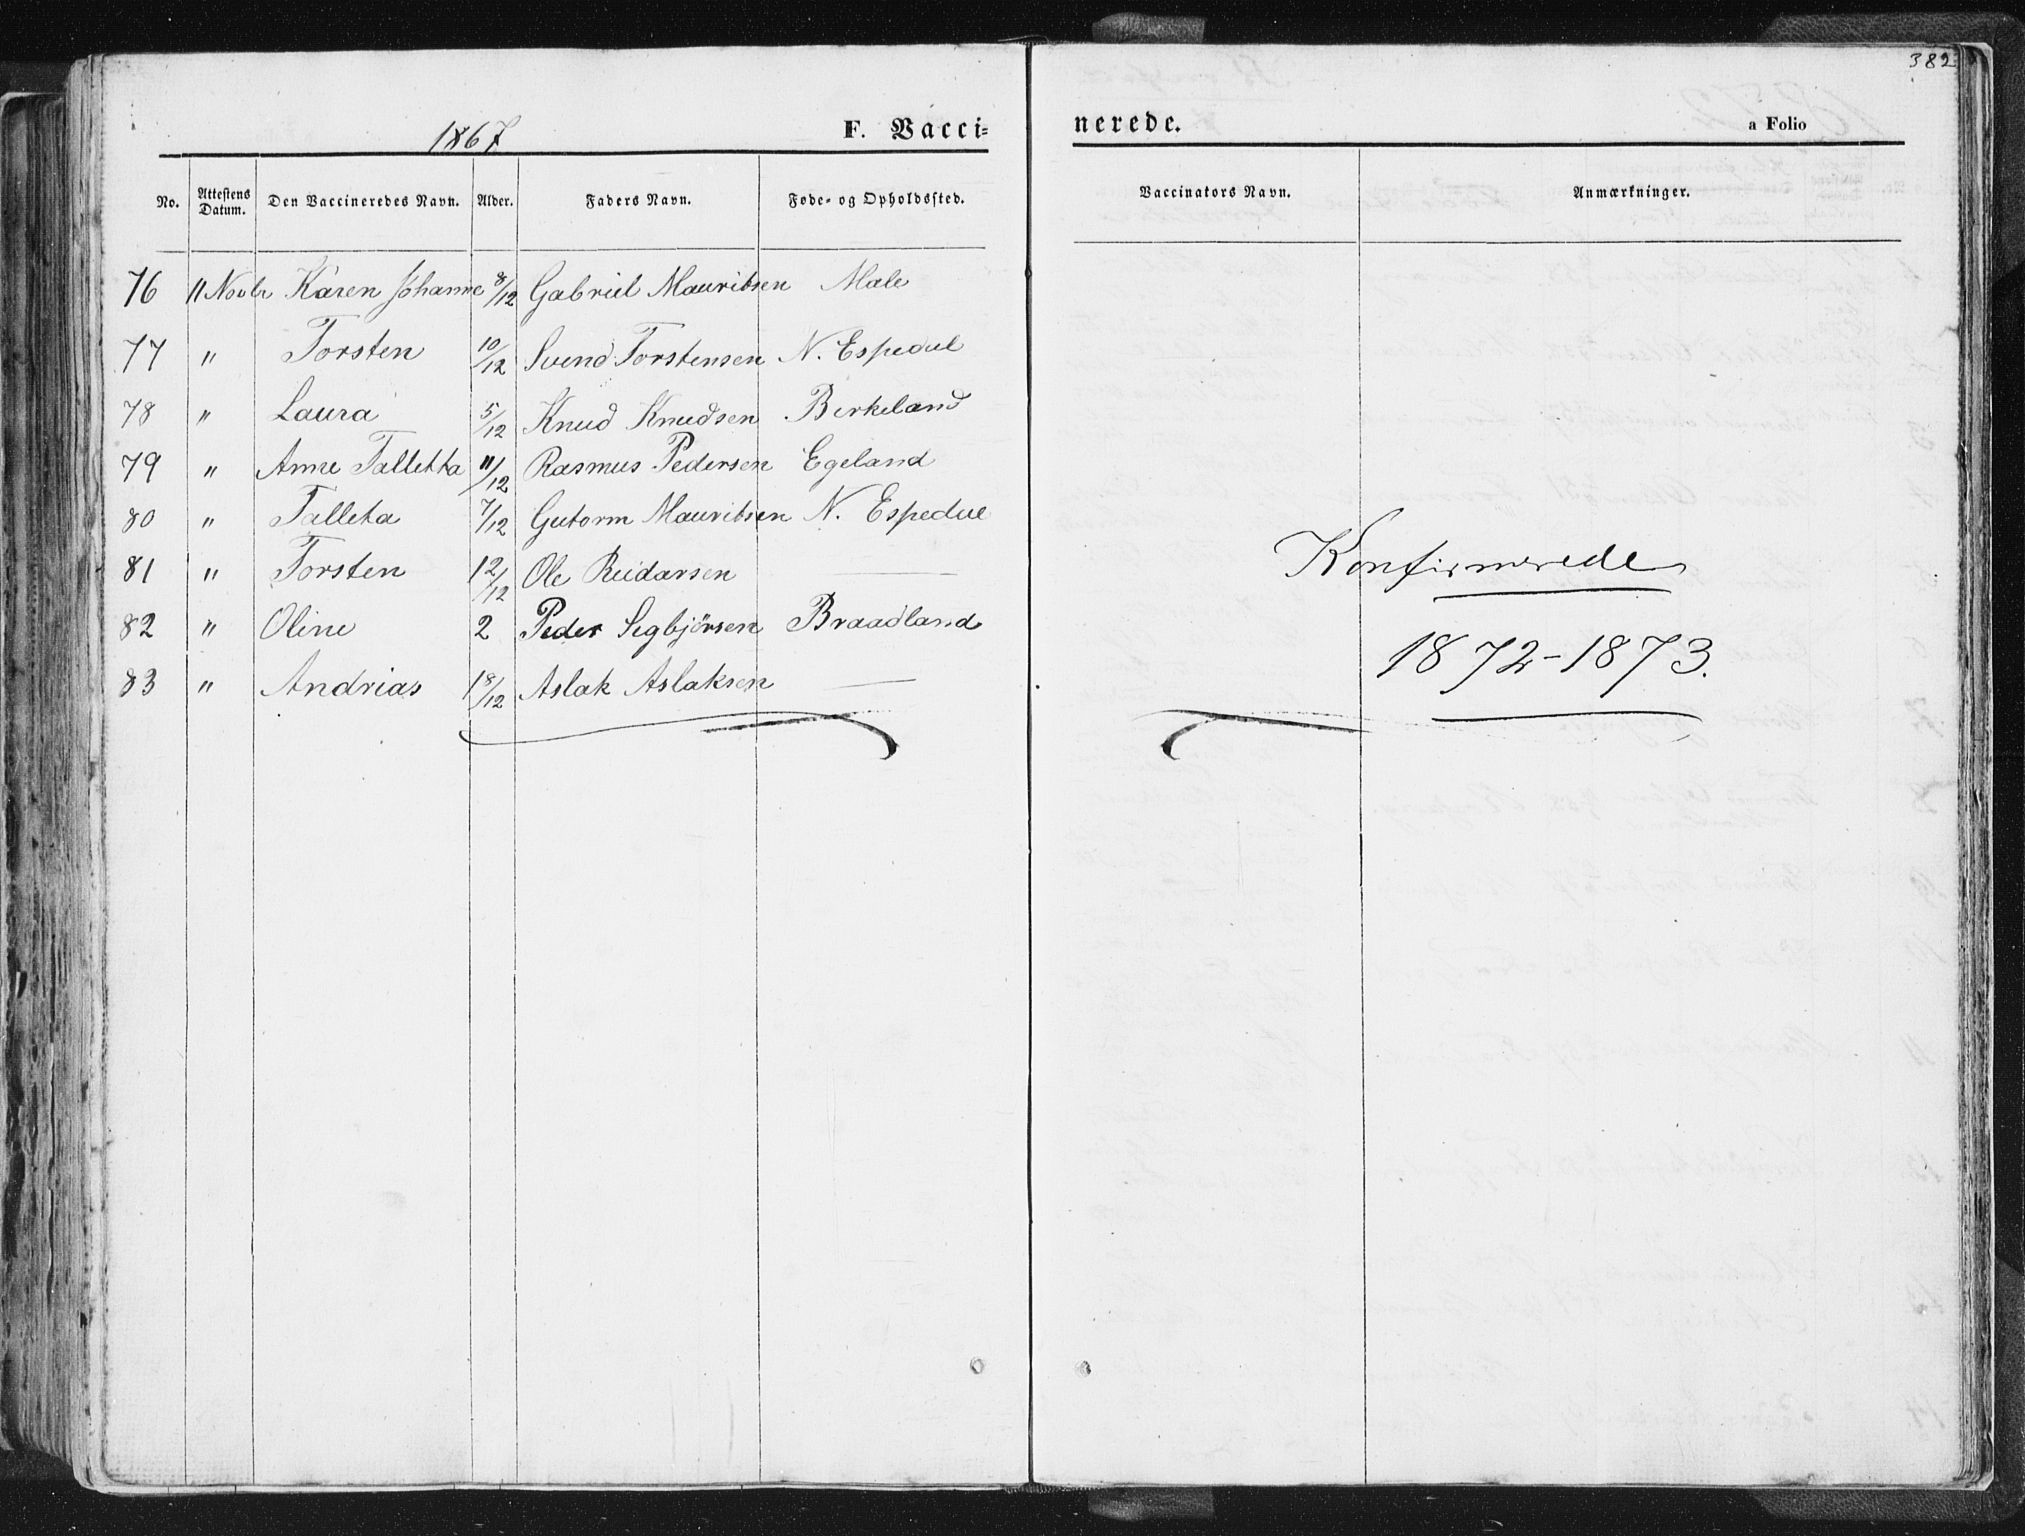 382
1867 F. Vacci=
nerede. a Folio
No. Attestens Datum. Den Vaccineredes Navn. Alder. Faders Navn. Føde- og Opholdssted. Vaccinators Navn. Anmærkninger.
76 11 Novbr Karen Johanne 8/12 Gabriel Mauritsen Male
77 " Torsten 10/12 Svend Torstensen N. Espedal
78 " Laura 5/12 Knud Knudsen Birkeland
79 " Anne Talletta 11/12 Rasmus Pedersen Egeland
80 " Talleta 7/12 Gutorm Mauritsen N. Espedal
81 " Torsten 12/12 Ole Reidarsen —
82 " Oline 2 Peder Sigbjörsen Braadland
83 " Andrias 18/12 Aslak Aslaksen —
Konfirmerede
1872-1873.